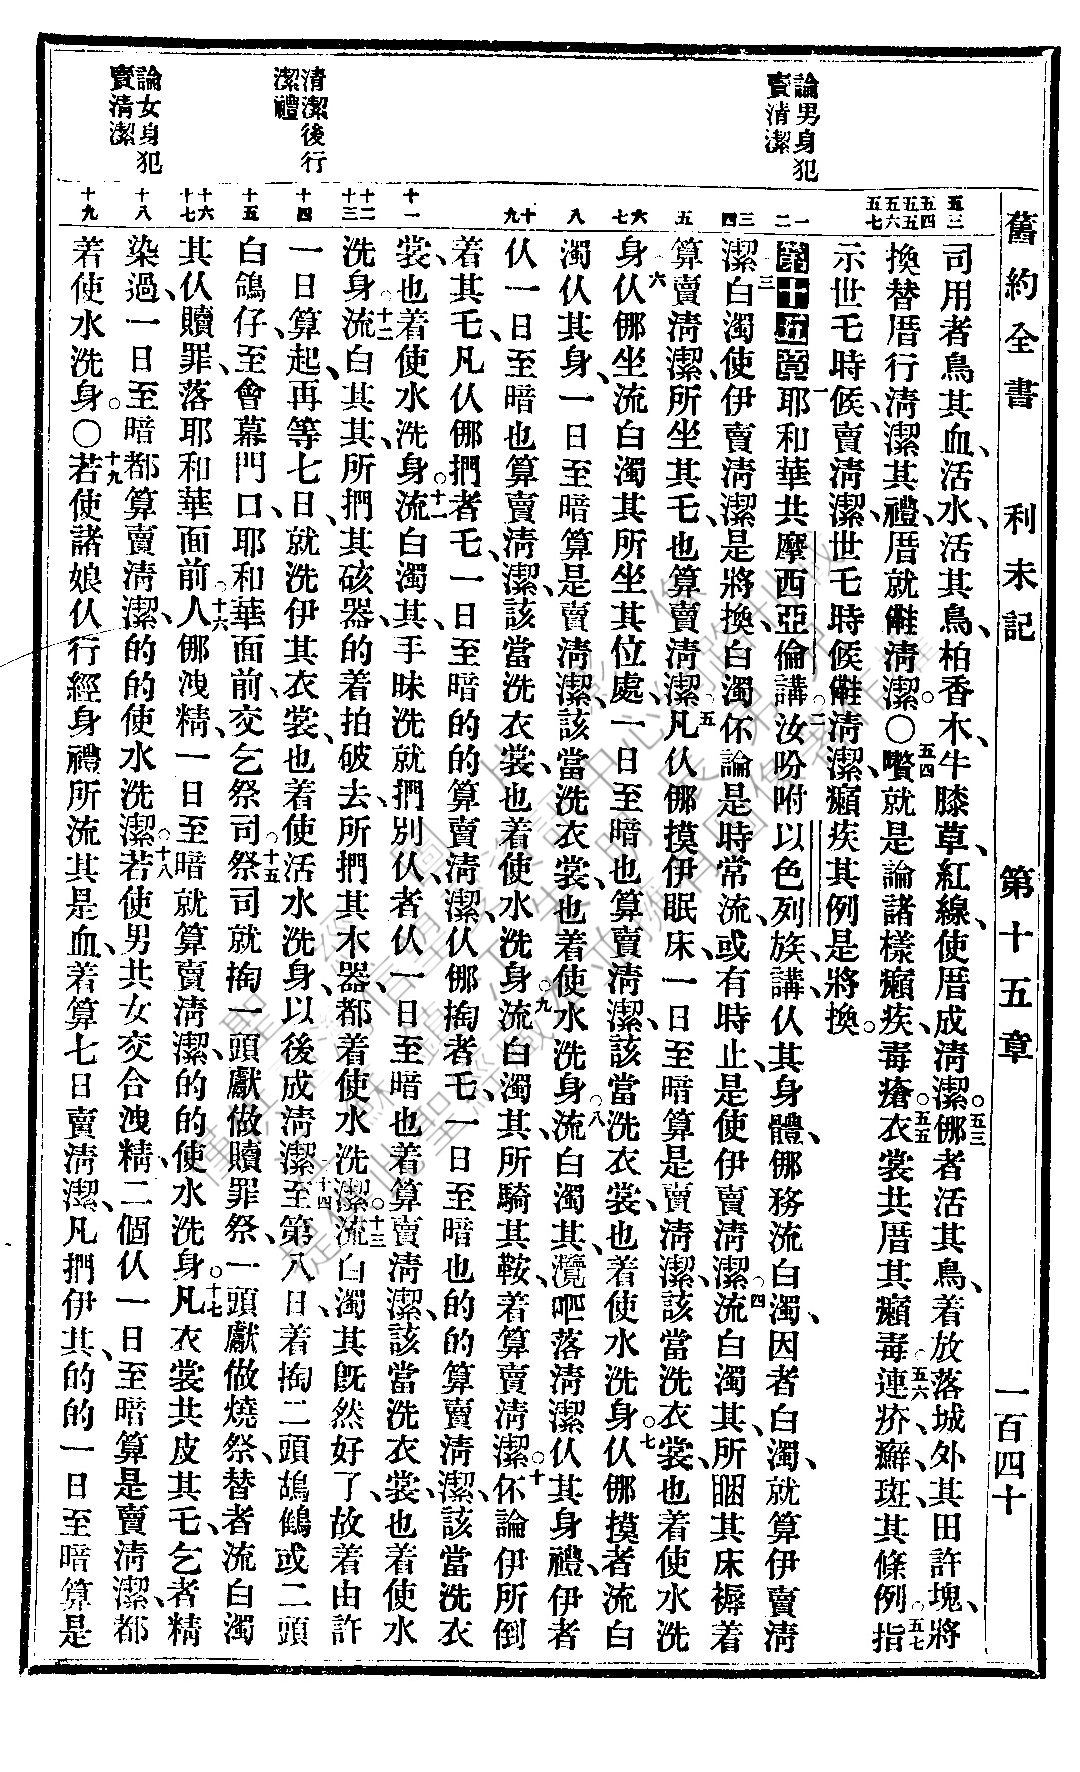 舊約全書 利未記 第十五章 一百四十
論男身犯
賣清潔
清潔後行
潔禮
論女身犯
賣清潔
五三
五四
五五
五六
五七
一
二
三
四
五
六
七
八
九
十
十一
十二
十三
十四
十五
十六
十七
十八
十九
司用者鳥其血、活水、活其鳥、柏香木、牛膝草、紅線、使厝成清潔。五三 㑚者活其鳥、着放落城外其田許塊、將
換替厝行清潔其禮、厝就㑻清潔。〇五四 嚽就是論諸樣癩疾、毒瘡、五五 衣裳共厝其癩毒、五六 連疥癬斑其條例、五七 指
示世乇時候賣清潔、世乇時候㑻清潔、癩疾其例是將換。
第十五章 一 耶和華共摩西亞倫講、二 汝吩咐以色列族講、仈其身體㑚務流白濁、因者白濁、就算伊賣清
潔、三 白濁使伊賣清潔、是將換、白濁伓論是時常流、或有時止、是使伊賣清潔、四 流白濁其、所睏其床褥着
算賣清潔、所坐其乇、也算賣清潔、五 凡仈㑚摸伊眠床、一日至暗算是賣清潔、該當洗衣裳、也着使水洗
身、六 仈㑚坐流白濁其所坐其位處、一日至暗也算賣清潔、該當洗衣裳、也着使水洗身。七 仈㑚摸者流白
濁仈其身、一日至暗算是賣清潔、該當洗衣裳、也着使水洗身、八 流白濁其、瀾吧落清潔仈其身禮、伊者
仈一日至暗也算賣清潔、該當洗衣裳、也着使水洗身。九 流白濁其、所騎其鞍、着算賣清潔。十 伓論伊所倒
着其乇、凡仈㑚捫者乇、一日至暗的的算賣清潔、仈㑚掏者乇、一日至暗也的的算賣清潔、該當洗衣
裳、也着使水洗身。十一 流白濁其、手昧洗就捫別仈、者仈一日至暗也着算賣清潔、該當洗衣裳、也着使水
洗身、十二 流白其其、所捫其硋器的着拍破去、所捫其木器都着使水洗潔。十三 流白濁其旣然好了、故着由許
一日算起、再等七日、就洗伊其衣裳、也着使活水洗身、以後成清潔、十四 至第八日、着掏二頭鴣鶴、或二頭
白鴿仔、至會幕門口、耶和華面前、交乞祭司、十五 祭司就掏一頭獻做贖罪祭、一頭獻做燒祭、替者流白濁
其仈贖罪、落耶和華面前、十六 人㑚洩精、一日至暗就算賣清潔、的的使水洗身。十七 凡衣裳共皮其乇、乞者精
染過、一日至暗都算賣清潔、的的使水洗潔。十八 若使男共女交合洩精、二個仈一日至暗算是賣清潔、都
着使水洗身。〇十九 若使諸娘仈行經、身禮所流其是血、着算七日賣清潔、凡捫伊其、的的一日至暗算是